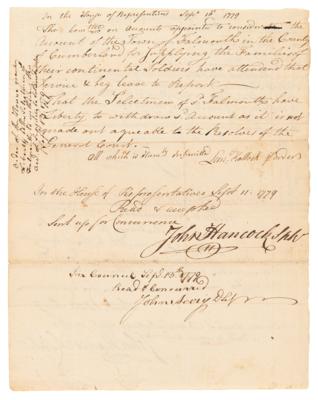 In the House of Representatives Sept 10th 1779
The Com'tee on accounts appointed to consider the
Account of the Town of Falmouth in the County
of Cumberland for Supplying the Families of
their continental Soldiers have attended that
Service & beg leave to Report
That the Selectmen of Sd Falmouth have
Liberty to withdraw Sd Account as it is not
made out agreable to the Resolves of the
General Court.
All which is Humbly Submitted
Pr order
In the House of Representatives Sept 11. 1779
Read & accepted
Sent up for Concurrence
John Hancock Spkr
In Council Sept 13th 1779
Read & Concurred
John Avery D Secy